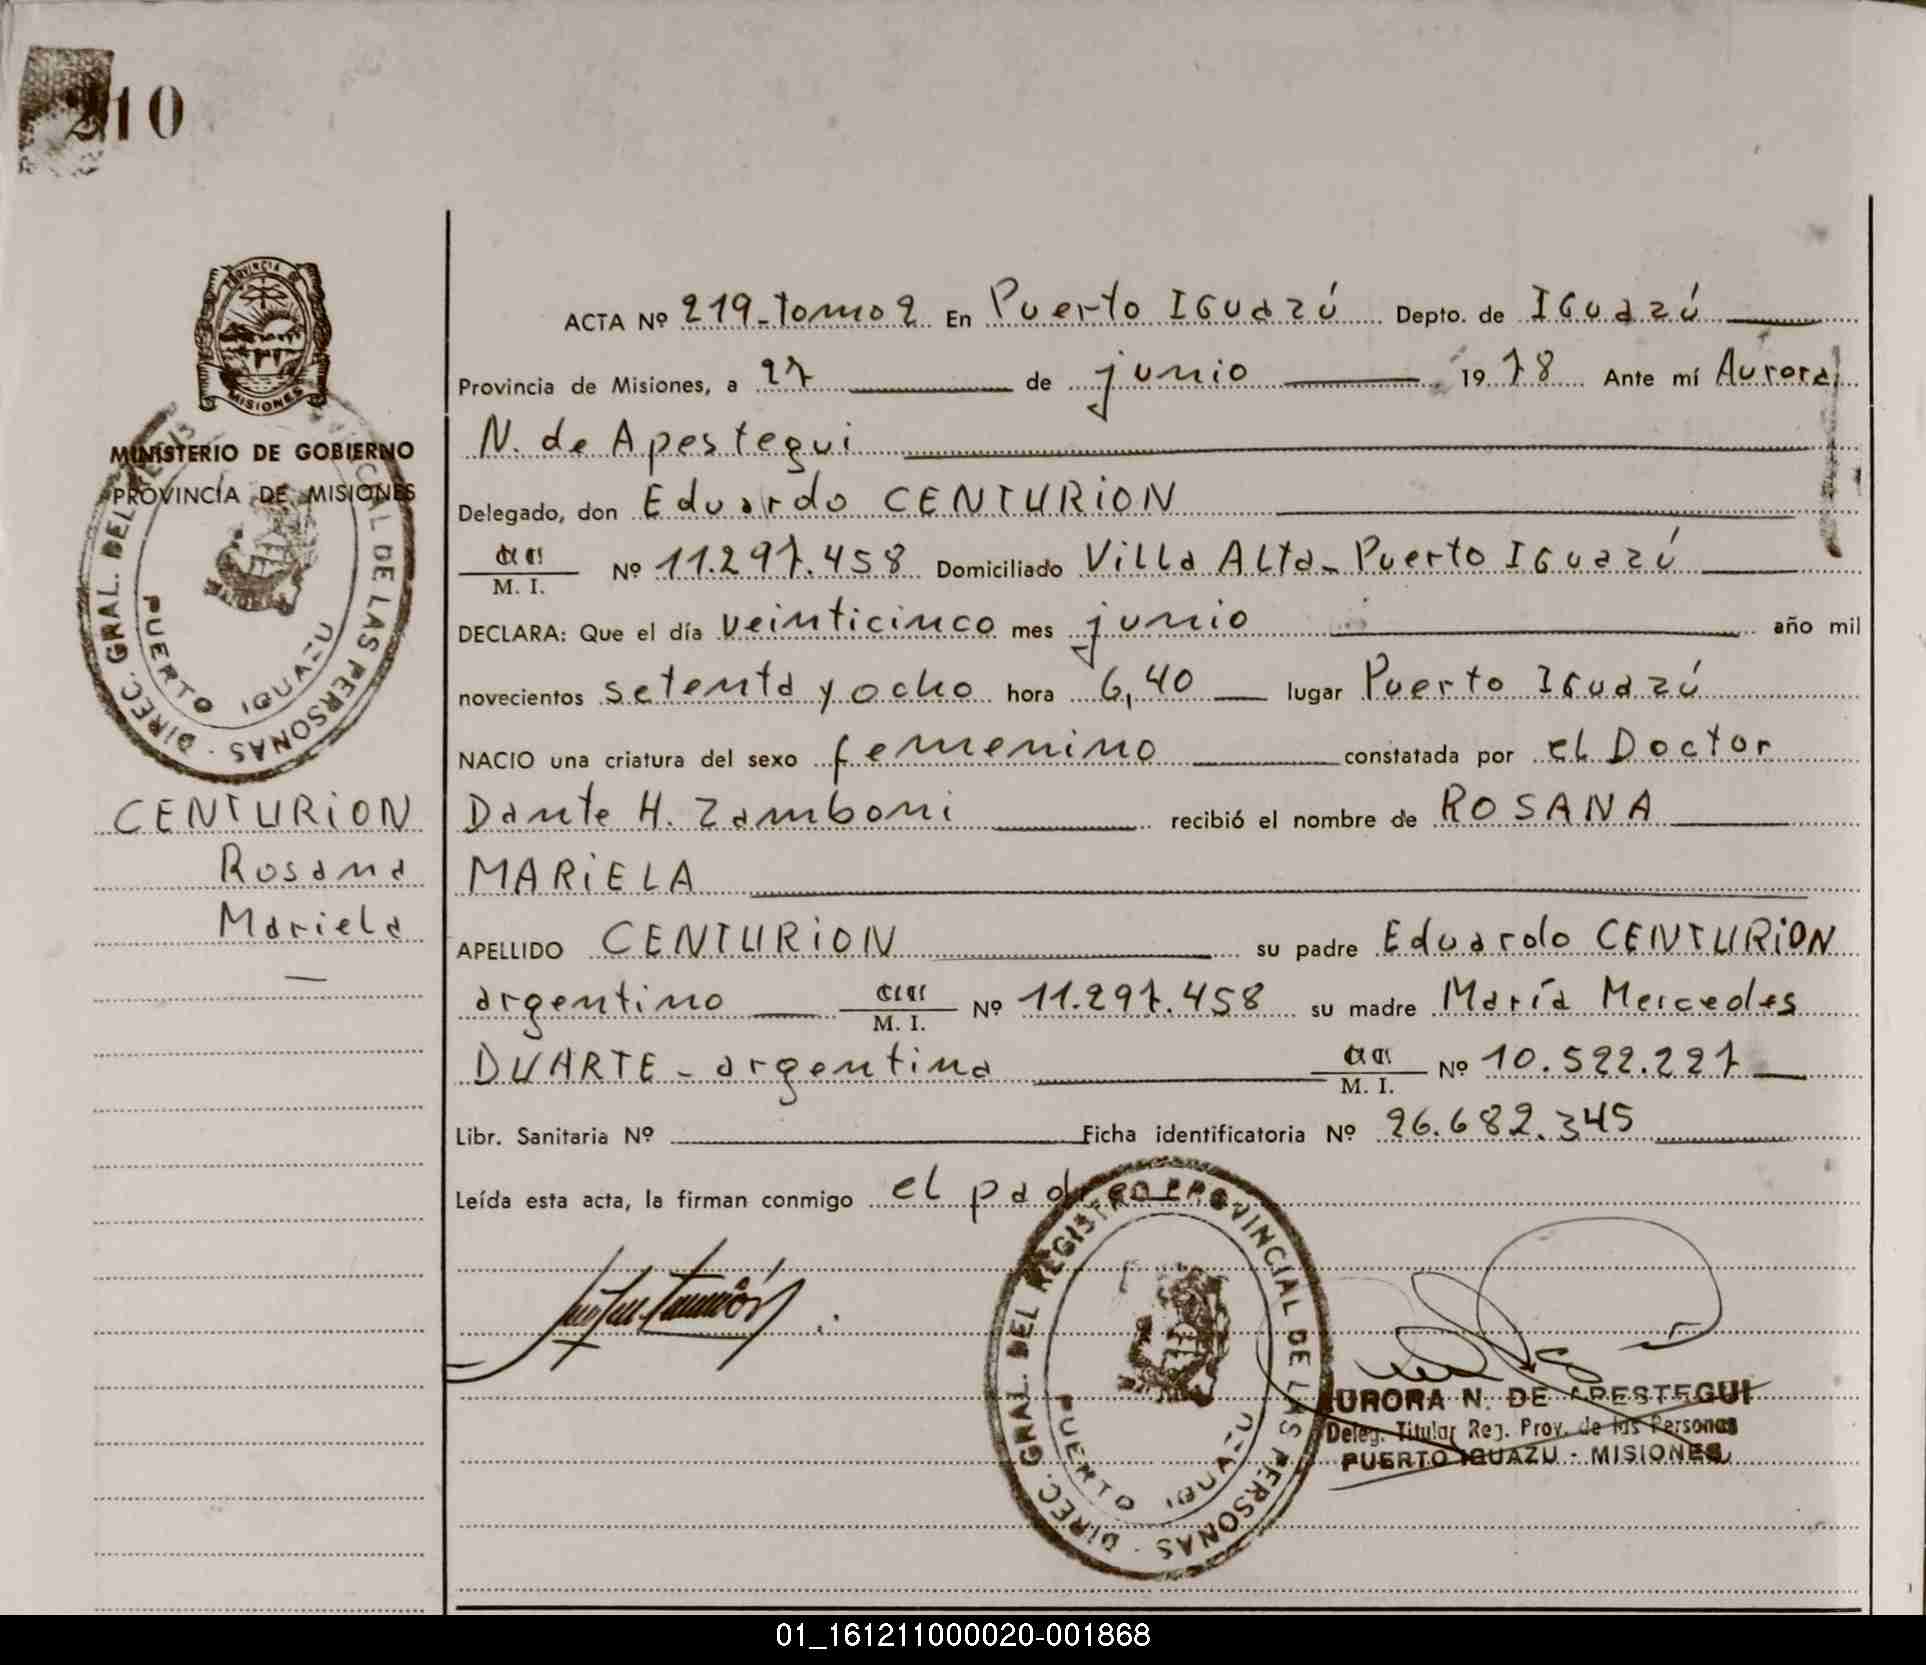 210
PROVINCIA DE
MISIONES
MINISTERIO DE GOBIERNO
PROVINCIA DE MISIONES
DIREC. GRAL. DEL REGIS CIAL DE LAS PERSONAS
PUERTO IGUAZU
CENTURION
Rosana
Mariela
ACTA Nº 219-tomo 2 En Puerto IGuazú Depto. de IGuazú
Provincia de Misiones, a 27 de junio 1978 Ante mí Aurora
N. de Apestegui
Delegado, don Eduardo CENTURION
M. I. Nº 11.297.458 Domiciliado Villa Alta-Puerto IGuazú
DECLARA: Que el día veinticinco mes junio año mil
novecientos setenta y ocho hora 6,40 lugar Puerto IGuazú
NACIO una criatura del sexo femenino constatada por el Doctor
Dante H. Zamboni recibió el nombre de ROSANA
MARIELA
APELLIDO CENTURION su padre Eduardo CENTURION
argentino M. I. Nº 11.297.458 su madre María Mercedes
DUARTE - argentina M. I. Nº 10.522.227
Libr. Sanitaria Nº Ficha identificatoria Nº 26.682.345
Leída esta acta, la firman conmigo el padre
DIREC. GRAL. DEL REGISTRO PROVINCIAL DE LAS PERSONAS
PUERTO IGUAZU
AURORA N. DE APESTEGUI
Deleg. Titular Reg. Prov. de las Personas
PUERTO IGUAZU - MISIONES
01_161211000020-001868